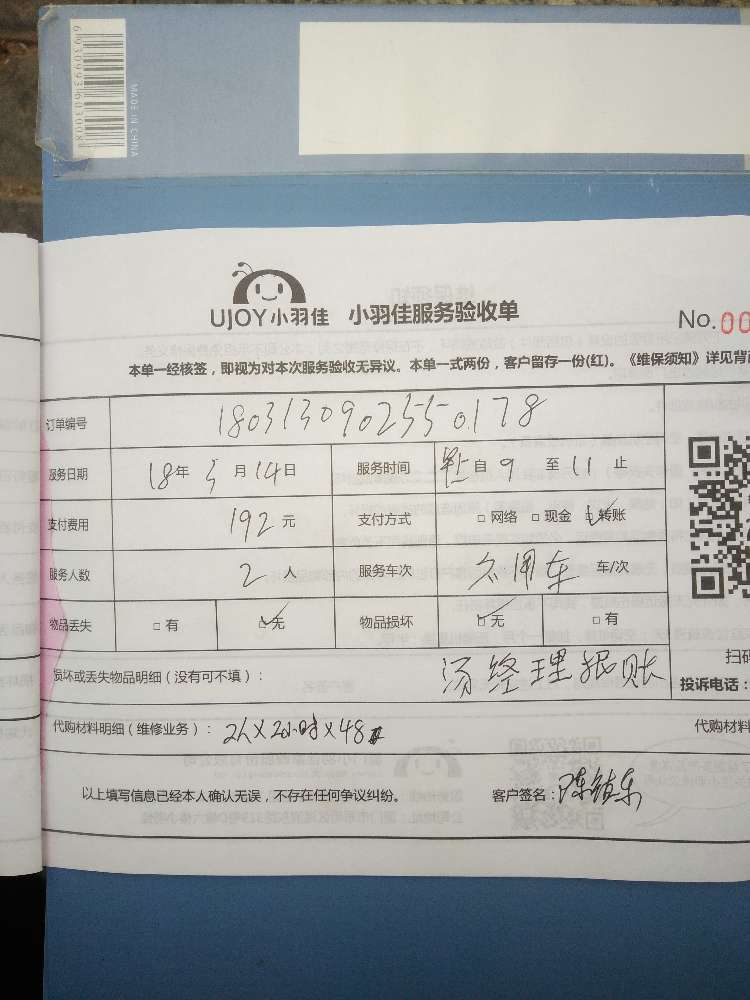 6930993603008
MADE IN CHINA
UJOY小羽佳 小羽佳服务验收单
No.00
本单一经核签，即视为对本次服务验收无异议。本单一式两份，客户留存一份(红)。《维保须知》详见背
订单编号 180313090255
服务日期 18年3月14日 服务时间 自9至11止
支付费用 192元 支付方式 □网络 □现金 ☑转账
服务人数 2人 服务车次 不用车 车/次
物品丢失 □有 ☑无 物品损坏 ☑无 □有
扫码
损坏或丢失物品明细（没有可不填）： 汤经理报账
投诉电话：
代购材料明细（维修业务）： 2人×2小时×48
代购材料
以上填写信息已经本人确认无误，不存在任何争议纠纷。 客户签名：陈镇东